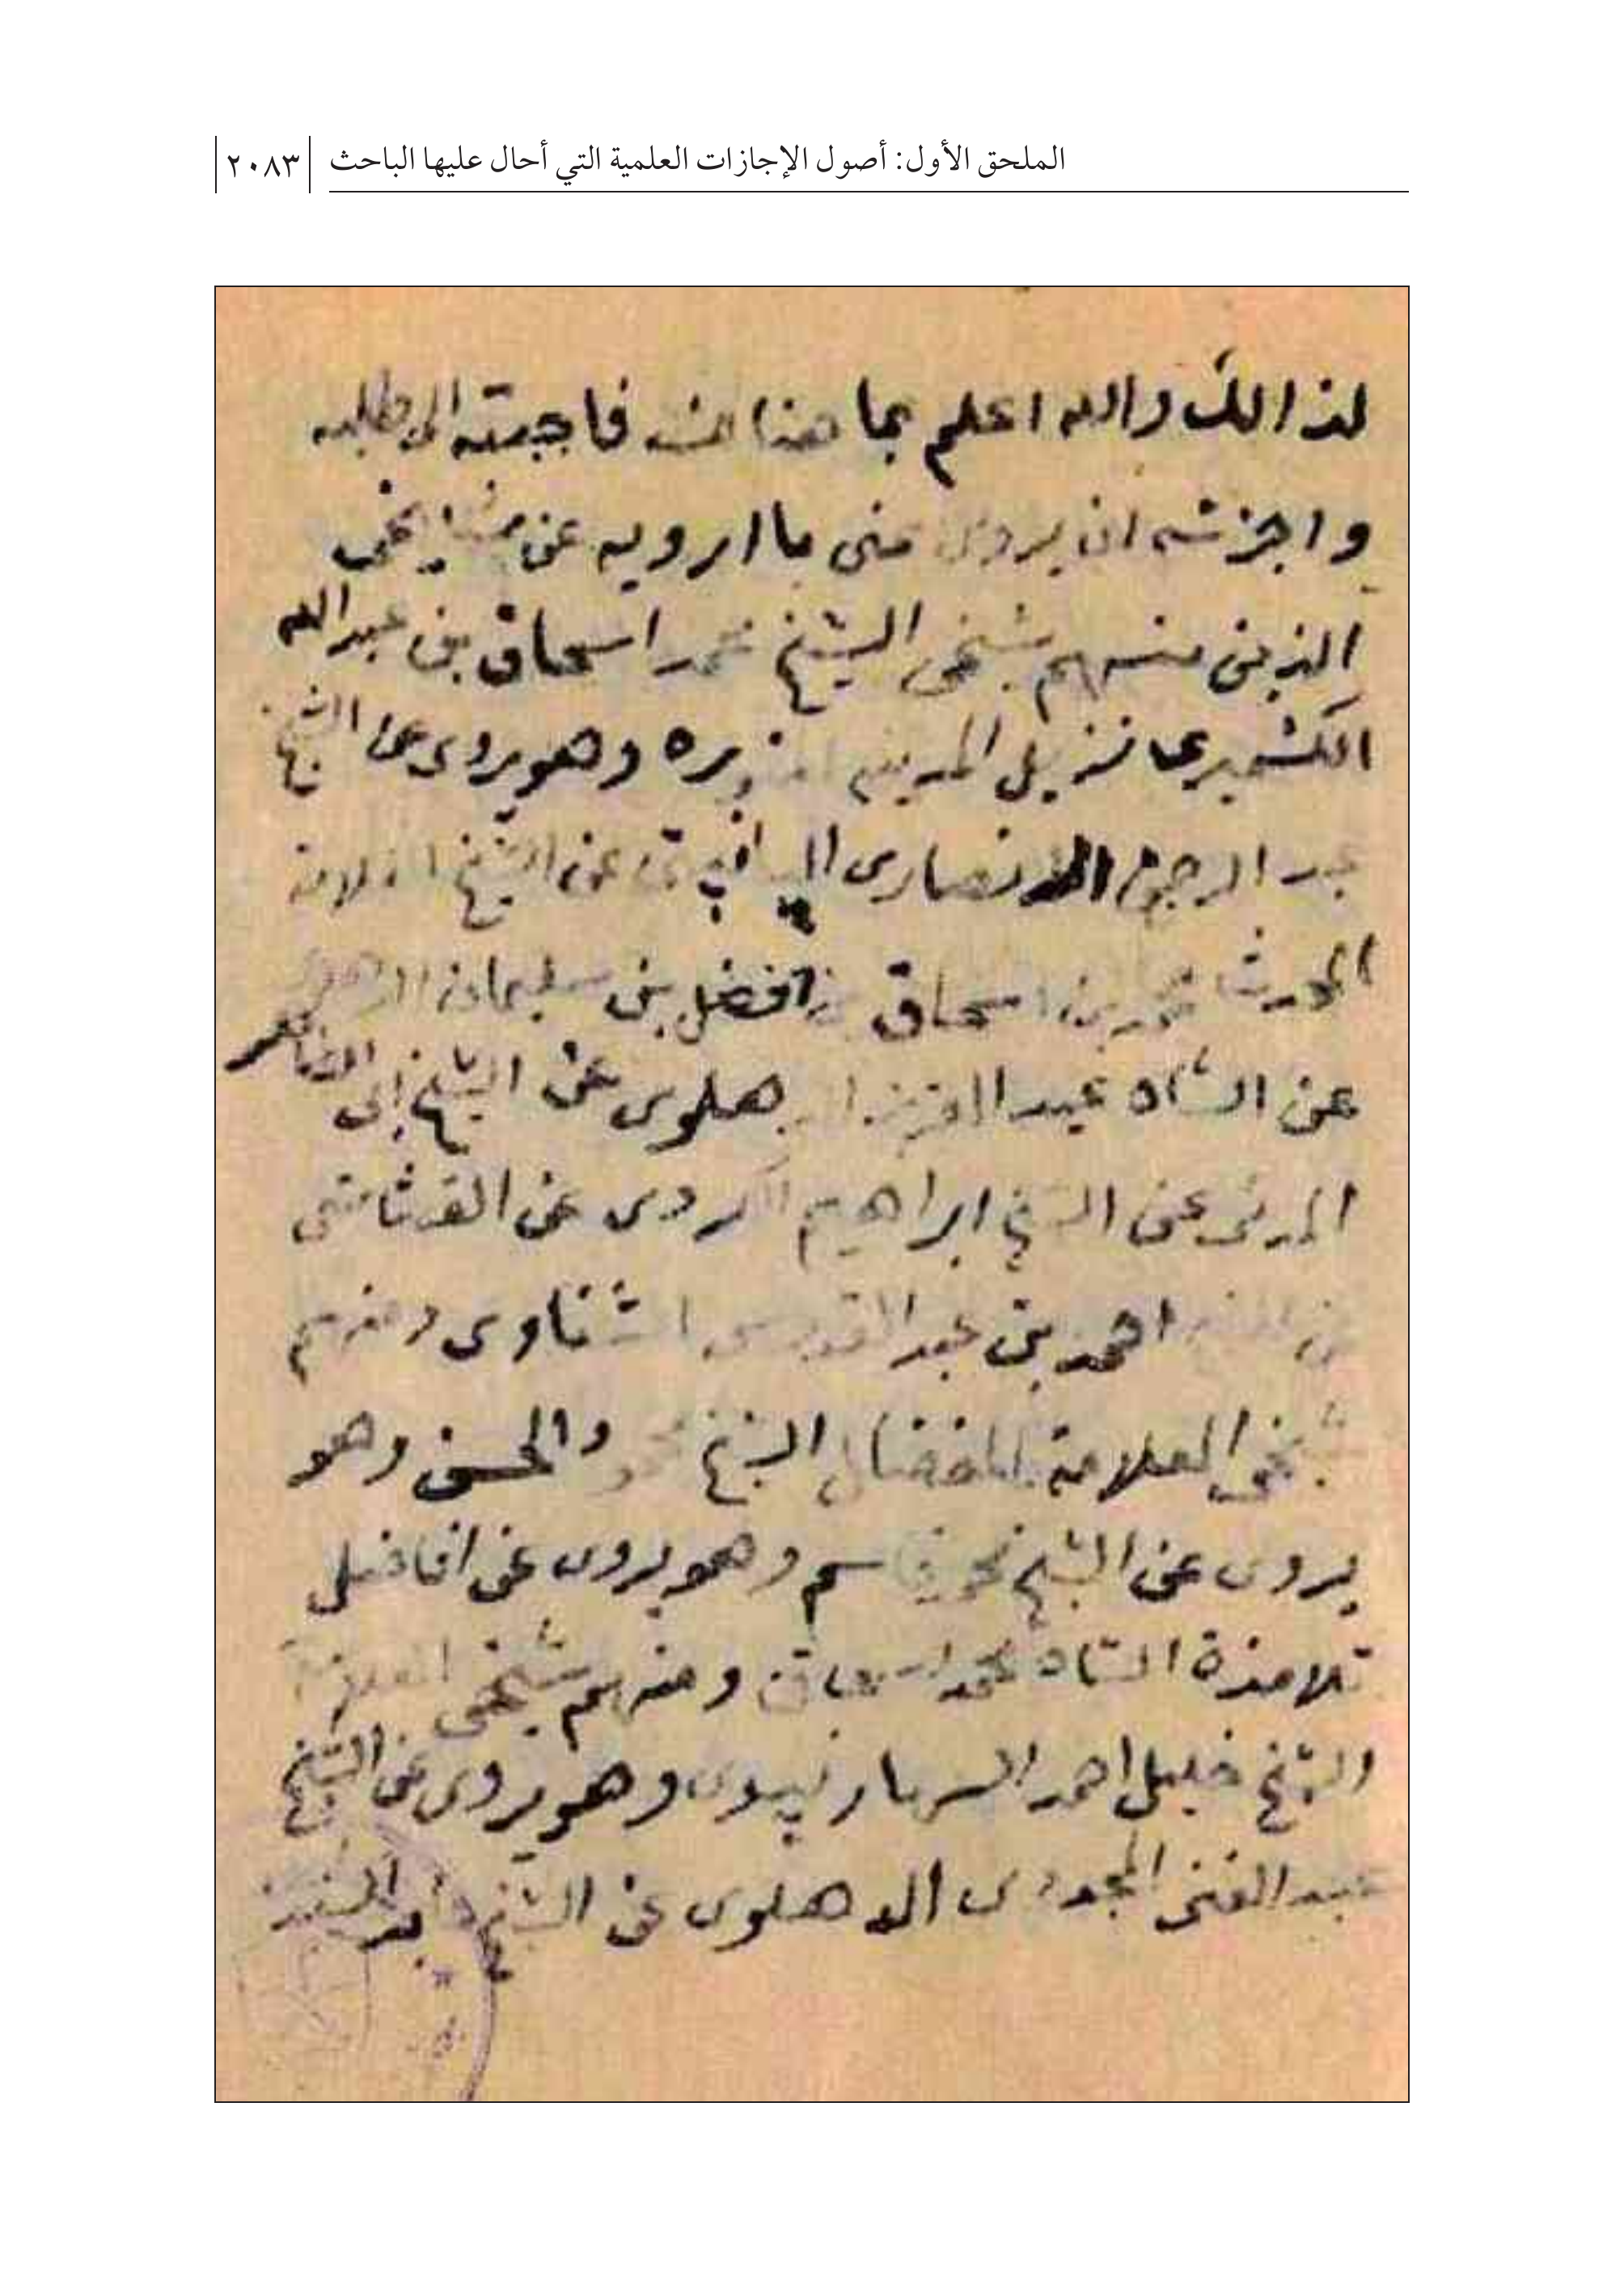 الملحق الأول: أصول الإجازات العلمية التي أحال عليها الباحث ٢٠٨٣
لذالك والله اعلم بما هنالك فاجبته الى مطلبه
واجزته ان يروى عنى ما ارويه عن مشايخى
الذين منهم شيخى الشيخ محمد اسحاق بن عبدالله
الكشميرى نزيل المدينه المنوره وهو يروى عن الشيخ
عبد الرحمن الانصارى عن الشيخ العلامة
المحدث محمد بن اسحاق بن افضل بن سليمان
عن الشاه عبد العزيز الدهلوى عن الشيخ ابى الطاهر
المدنى عن الشيخ ابراهيم الكردى عن القشاشى
عن الشيخ احمد بن عبد القدوس الشناوى ومنهم
شيخى العلامة المفضال الشيخ محمود الحسن وهو
يروى عن الشيخ محمد قاسم وهو يروى عن افاضل
تلامذة الشاه محمد اسحاق ومنهم شيخى العلامة
الشيخ خليل احمد السهارنپورى وهو يروى عن الشيخ
عبد الغنى المجددى الدهلوى عن الشيخ